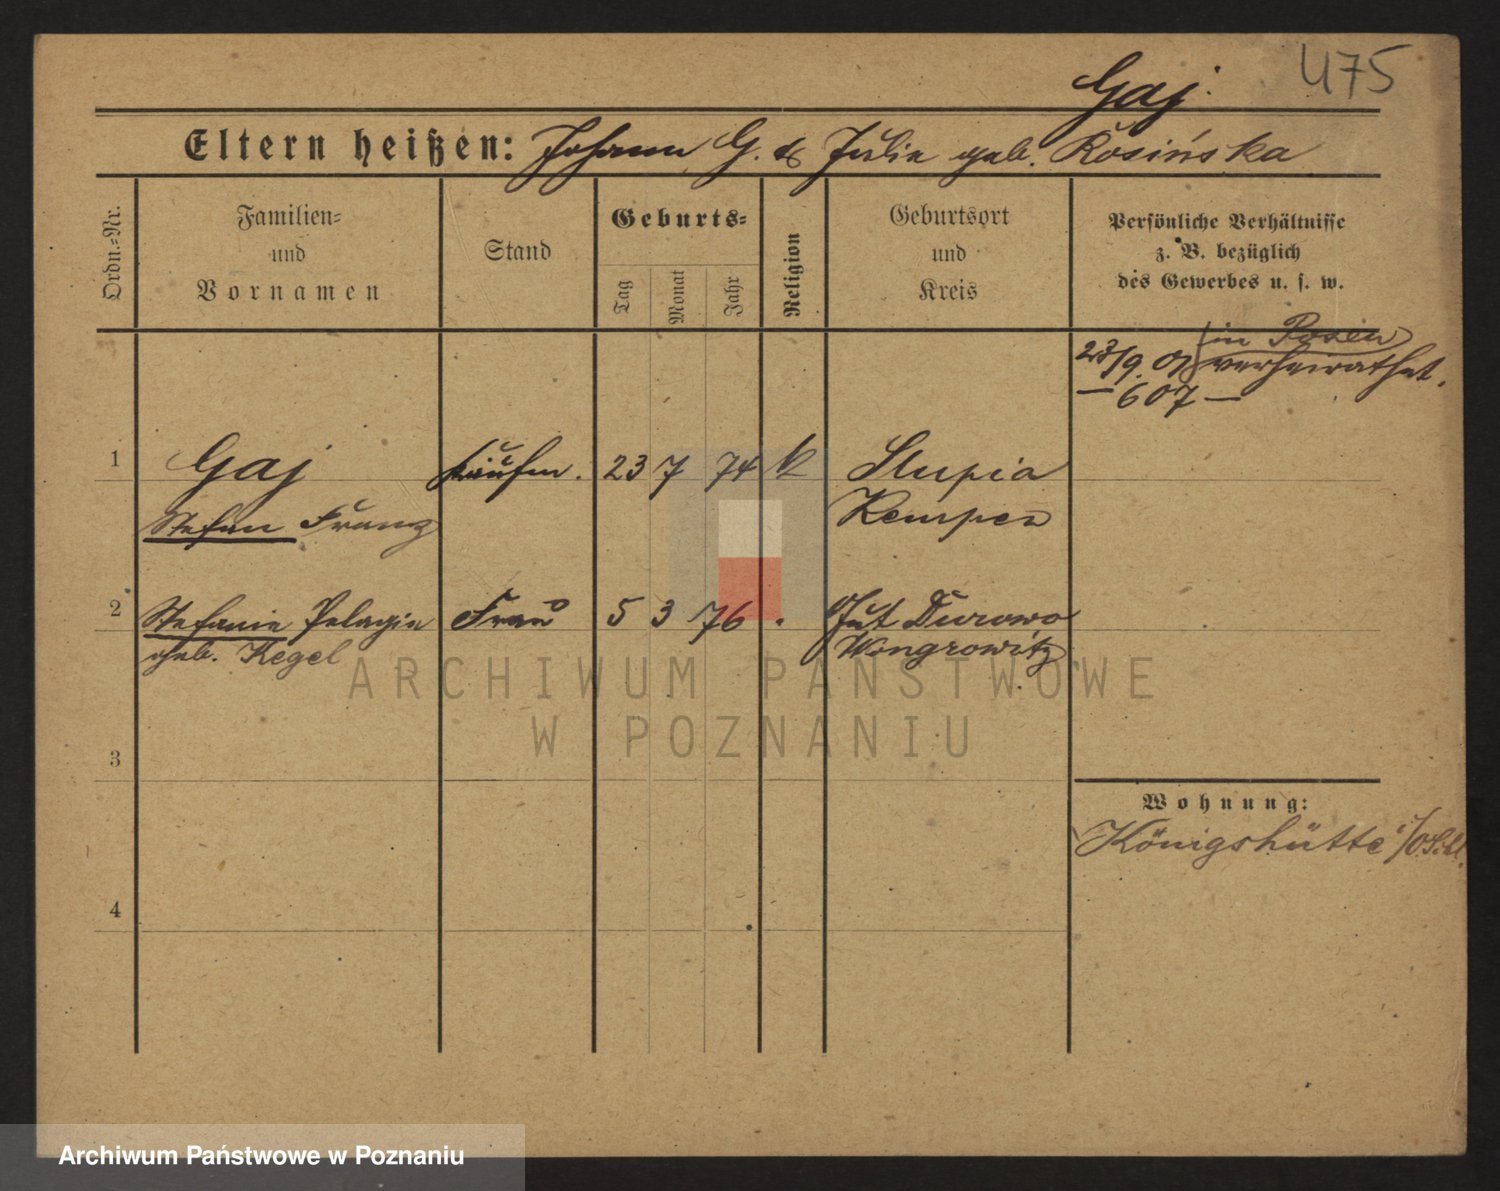 Gaj.
475
Eltern heißen: Johann G. & Julie geb. Rosińska
Ordn.-Nr.
Familien-
und
Vornamen
Stand
Geburts-
Tag
Monat
Jahr
Religion
Geburtsort
und
Kreis
Persönliche Verhältnisse
z. B. bezüglich
des Gewerbes u. s. w.
in Posen
23/9. 01 verheirathet.
— 607 —
1 Gaj Kaufm. 23 7 74 k Slupia
Stefan Franz Kempen
2 Stefanie Pelagia Frau 5 3 76 Gut Durowo
geb. Kegel Wongrowitz
ARCHIWUM PAŃSTWOWE
W POZNANIU
3
Wohnung:
Königshütte i/O.S.
4
Archiwum Państwowe w Poznaniu